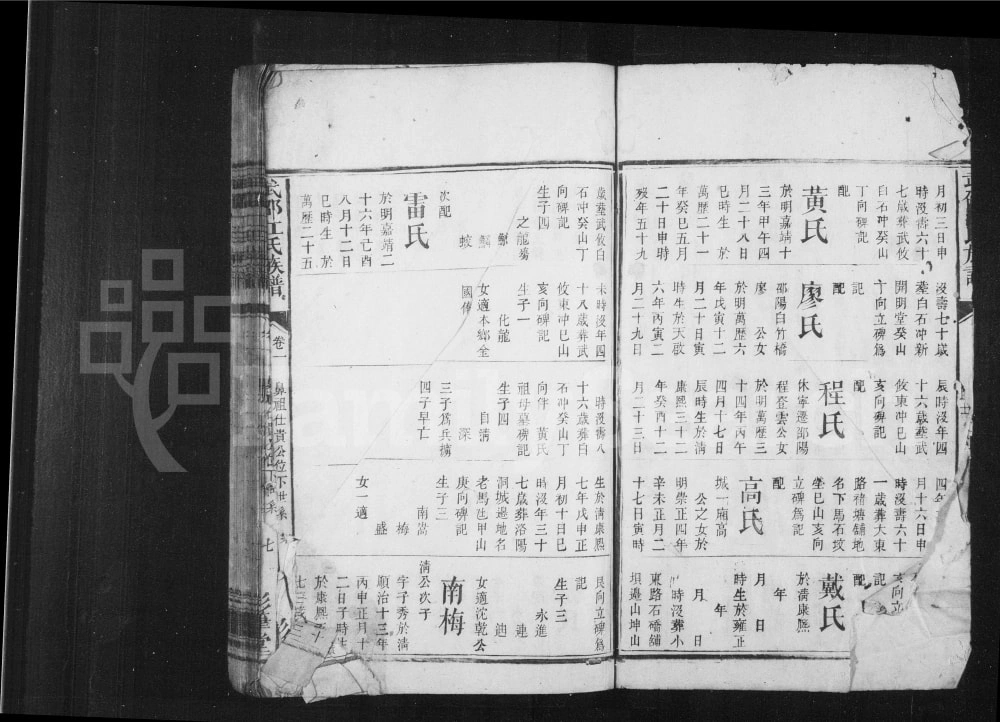 月初三日申
時沒壽六十
七歲葬武攸
白石冲癸山
丁向碑記
配
黃氏
於明嘉靖十
三年甲午四
月二十八日
巳時生　於
萬歷二十一
年癸巳五月
二十日申時
歿年五十九
歲葬武攸白
石冲癸山丁
向碑記
生子四
之龍
次配
雷氏
於明嘉靖二
十六年己酉
八月十二日
巳時生　於
萬歷二十五
沒壽七十歲
葬白石冲新
開明堂癸山
丁向立碑爲
記
配
廖氏
邵陽白竹橋
廖　公女
於明萬歷六
年戊寅十二
月二十日寅
時生於天啟
六年丙寅二
月二十九日
未時沒年四
十八歲葬武
攸東冲巳山
亥向碑記
生子一
化龍
女適本鄉金
國傅
辰時沒年四
十六歲葬武
攸東冲巳山
亥向碑記
配
程氏
休寧遷邵陽
程登雲公女
於明萬歷三
十四年丙午
四月十七日
辰時生於淸
康熙三十二
年癸酉十二
月二十三日
時沒壽八
十六歲葬白
石冲癸山丁
向伴　黃氏
祖母墓碑記
生子四
自淸
深
三子爲兵擄
四子早亡
月十六日申
時沒壽六十
一歲葬大東
路楮塘舖地
名下馬石坟
坐巳山亥向
立碑爲記
配
高氏
城一南高
公之女於
明崇正四年
辛未正月二
十七日寅時
生於淸康熙
七年戊申正
月初十日巳
時沒年三十
七歲葬洛陽
洞城邊地名
老馬氹甲山
庚向碑記
生子三
南嵩
梅
盛
女一適
亥向立
記
配
戴氏
於淸康熙
年
月　日
時生於雍正
年
月　日
時沒葬小
東路石磻舖
垻邊山坤山
艮向立碑爲
記
生子三
永進
建
迪
女適沈乾公
南梅
淸公次子
字子秀於淸
順治十三年
丙申正月十
二日子時生
於康熙
武邵江氏族譜
卷一
鼻祖仕貴公位下世系
七